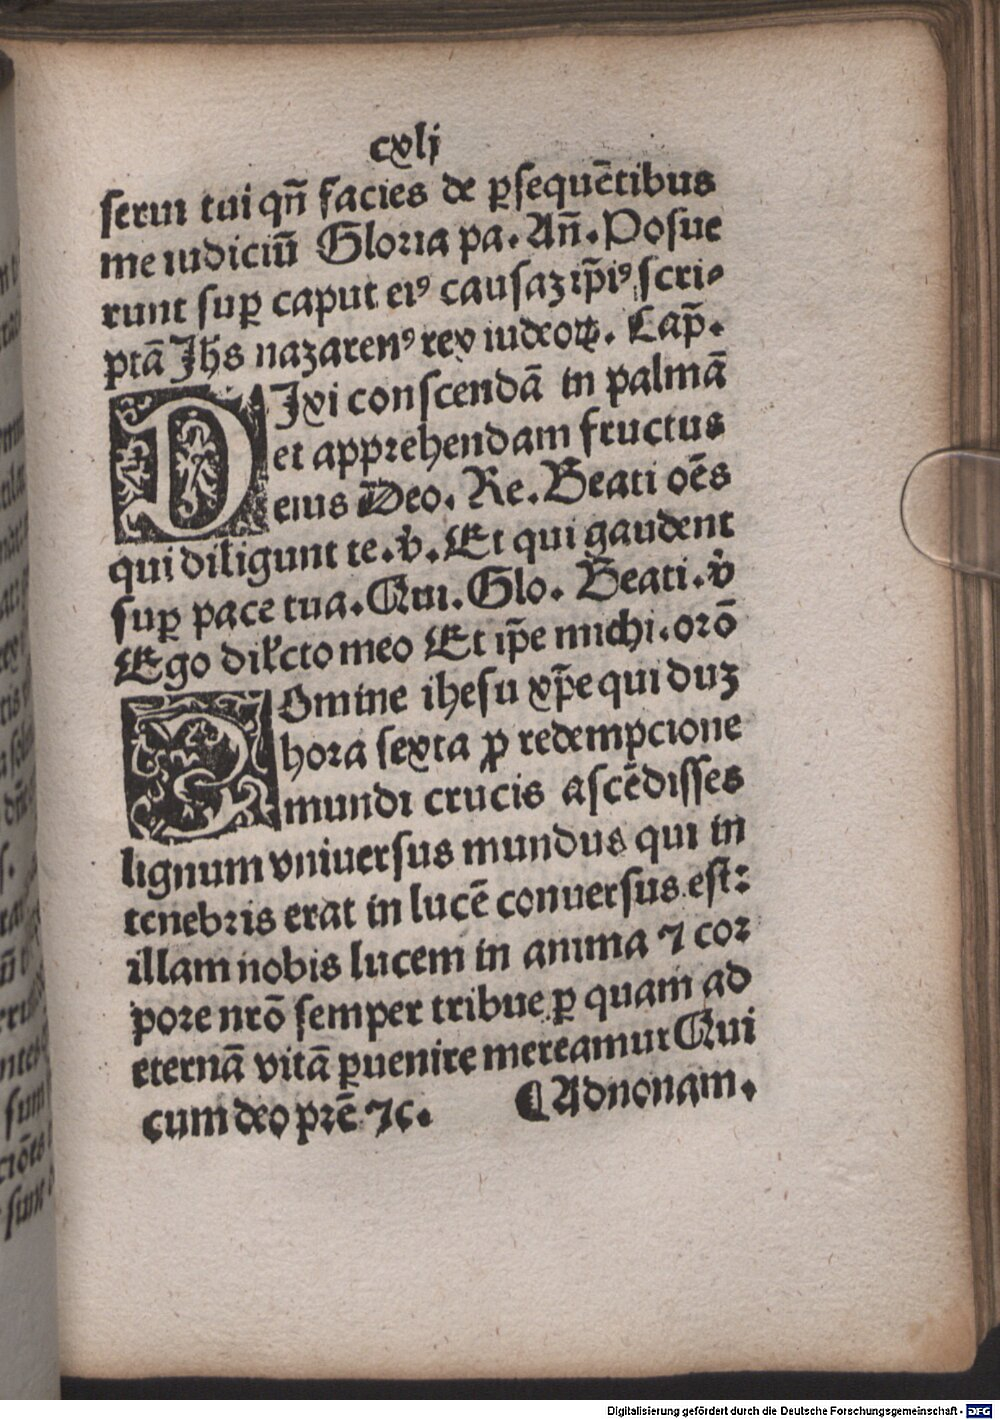 cxlj
serui tui qn̄ facies de ꝑsequētibus
me iudiciū Gloria pa. An̄. Posue
runt suꝑ caput eiꝰ causaꝫ ip̄iꝰ scri⸗
ptā Jh̄s nazarenꝰ rex iudeoꝝ. Cap̄.
DJxi conscendā in palmā
et apprehendam fructus
eius Deo. Re. Beati oēs
qui diligunt te. v̄. Et qui gaudent
suꝑ pace tua. Qui. Glo. Beati. v̄
Ego dil̄cto meo Et ip̄e michi. orō
DOmine ihesu xp̄e qui duꝫ
hora sexta ꝓ redempcione
mundi crucis ascēdisses
lignum vniuersus mundus qui in
tenebris erat in lucē conuersus est:
illam nobis lucem in anima ⁊ cor
pore nrō semper tribue ꝑ quam ad
eternā vitā ꝑuenire mereamur Qui
cum deo prē ⁊c. ⸿ Ad nonam.
Digitalisierung gefördert durch die Deutsche Forschungsgemeinschaft - DFG